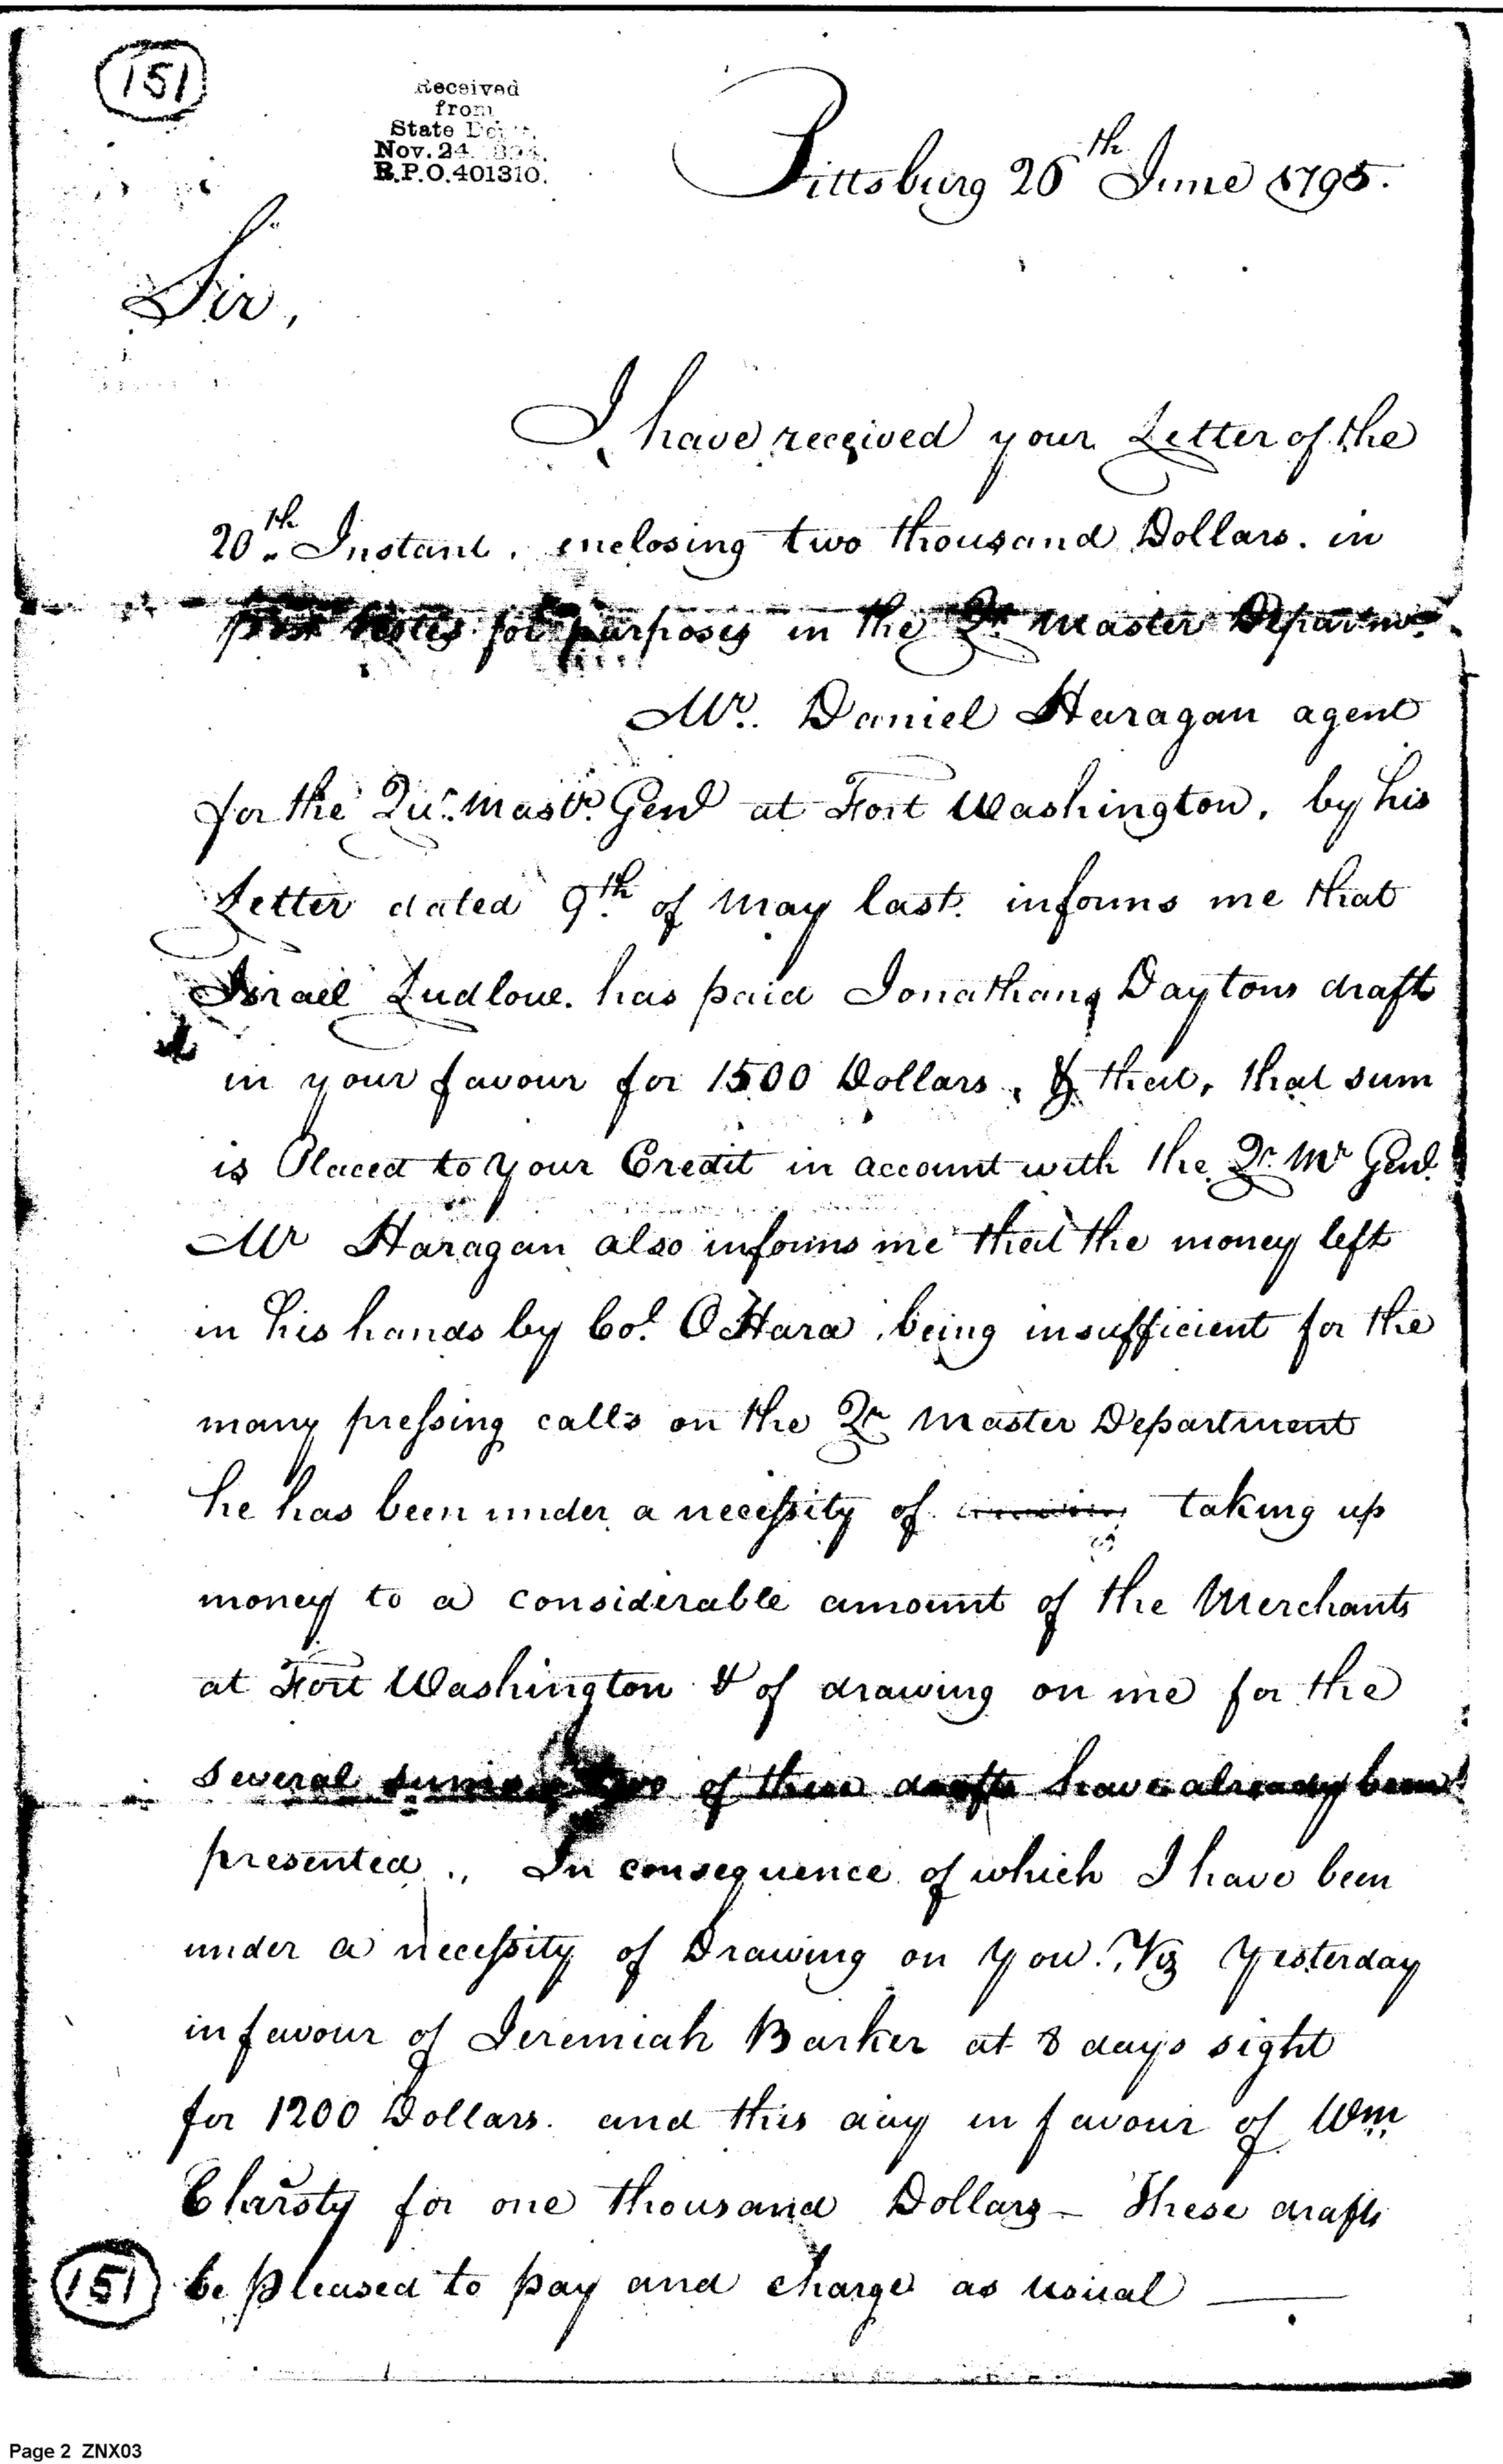 151
Received
from
State Dep't.
Nov. 24 1894.
R.P.O. 401310.
Pittsburg 26th June 1795.
Sir,
I have received your Letter of the
20th Instant, enclosing two thousand Dollars. in
post Notes for purposes in the Qr. Master Departmt.
Mr. Daniel Haragan agent
for the Qur. Mastr. Genl at Fort Washington, by his
Letter dated 9th of May last. informs me that
Israel Ludlow. has paid Jonathans Daytons draft
in your favour for 1500 Dollars, & that, that sum
is Placed to your Credit in account with the Qr. Mr Genl.
Mr Haragan also informs me that the money left
in his hands by Col. O Hara being insufficient for the
many pressing calls on the Qr Master Department
he has been under a necessity of taking up
money to a considerable amount of the Merchants
at Fort Washington & of drawing on me for the
several sums of these drafts have already been
presented., In consequence of which I have been
under a necessity of Drawing on you., Viz Yesterday
in favour of Jeremiah Barker at 8 days sight
for 1200 Dollars. and this day in favour of Wm.
Chirsty for one thousand Dollars - These drafts
be pleased to pay and charge as usual —
151
Page 2 ZNX03